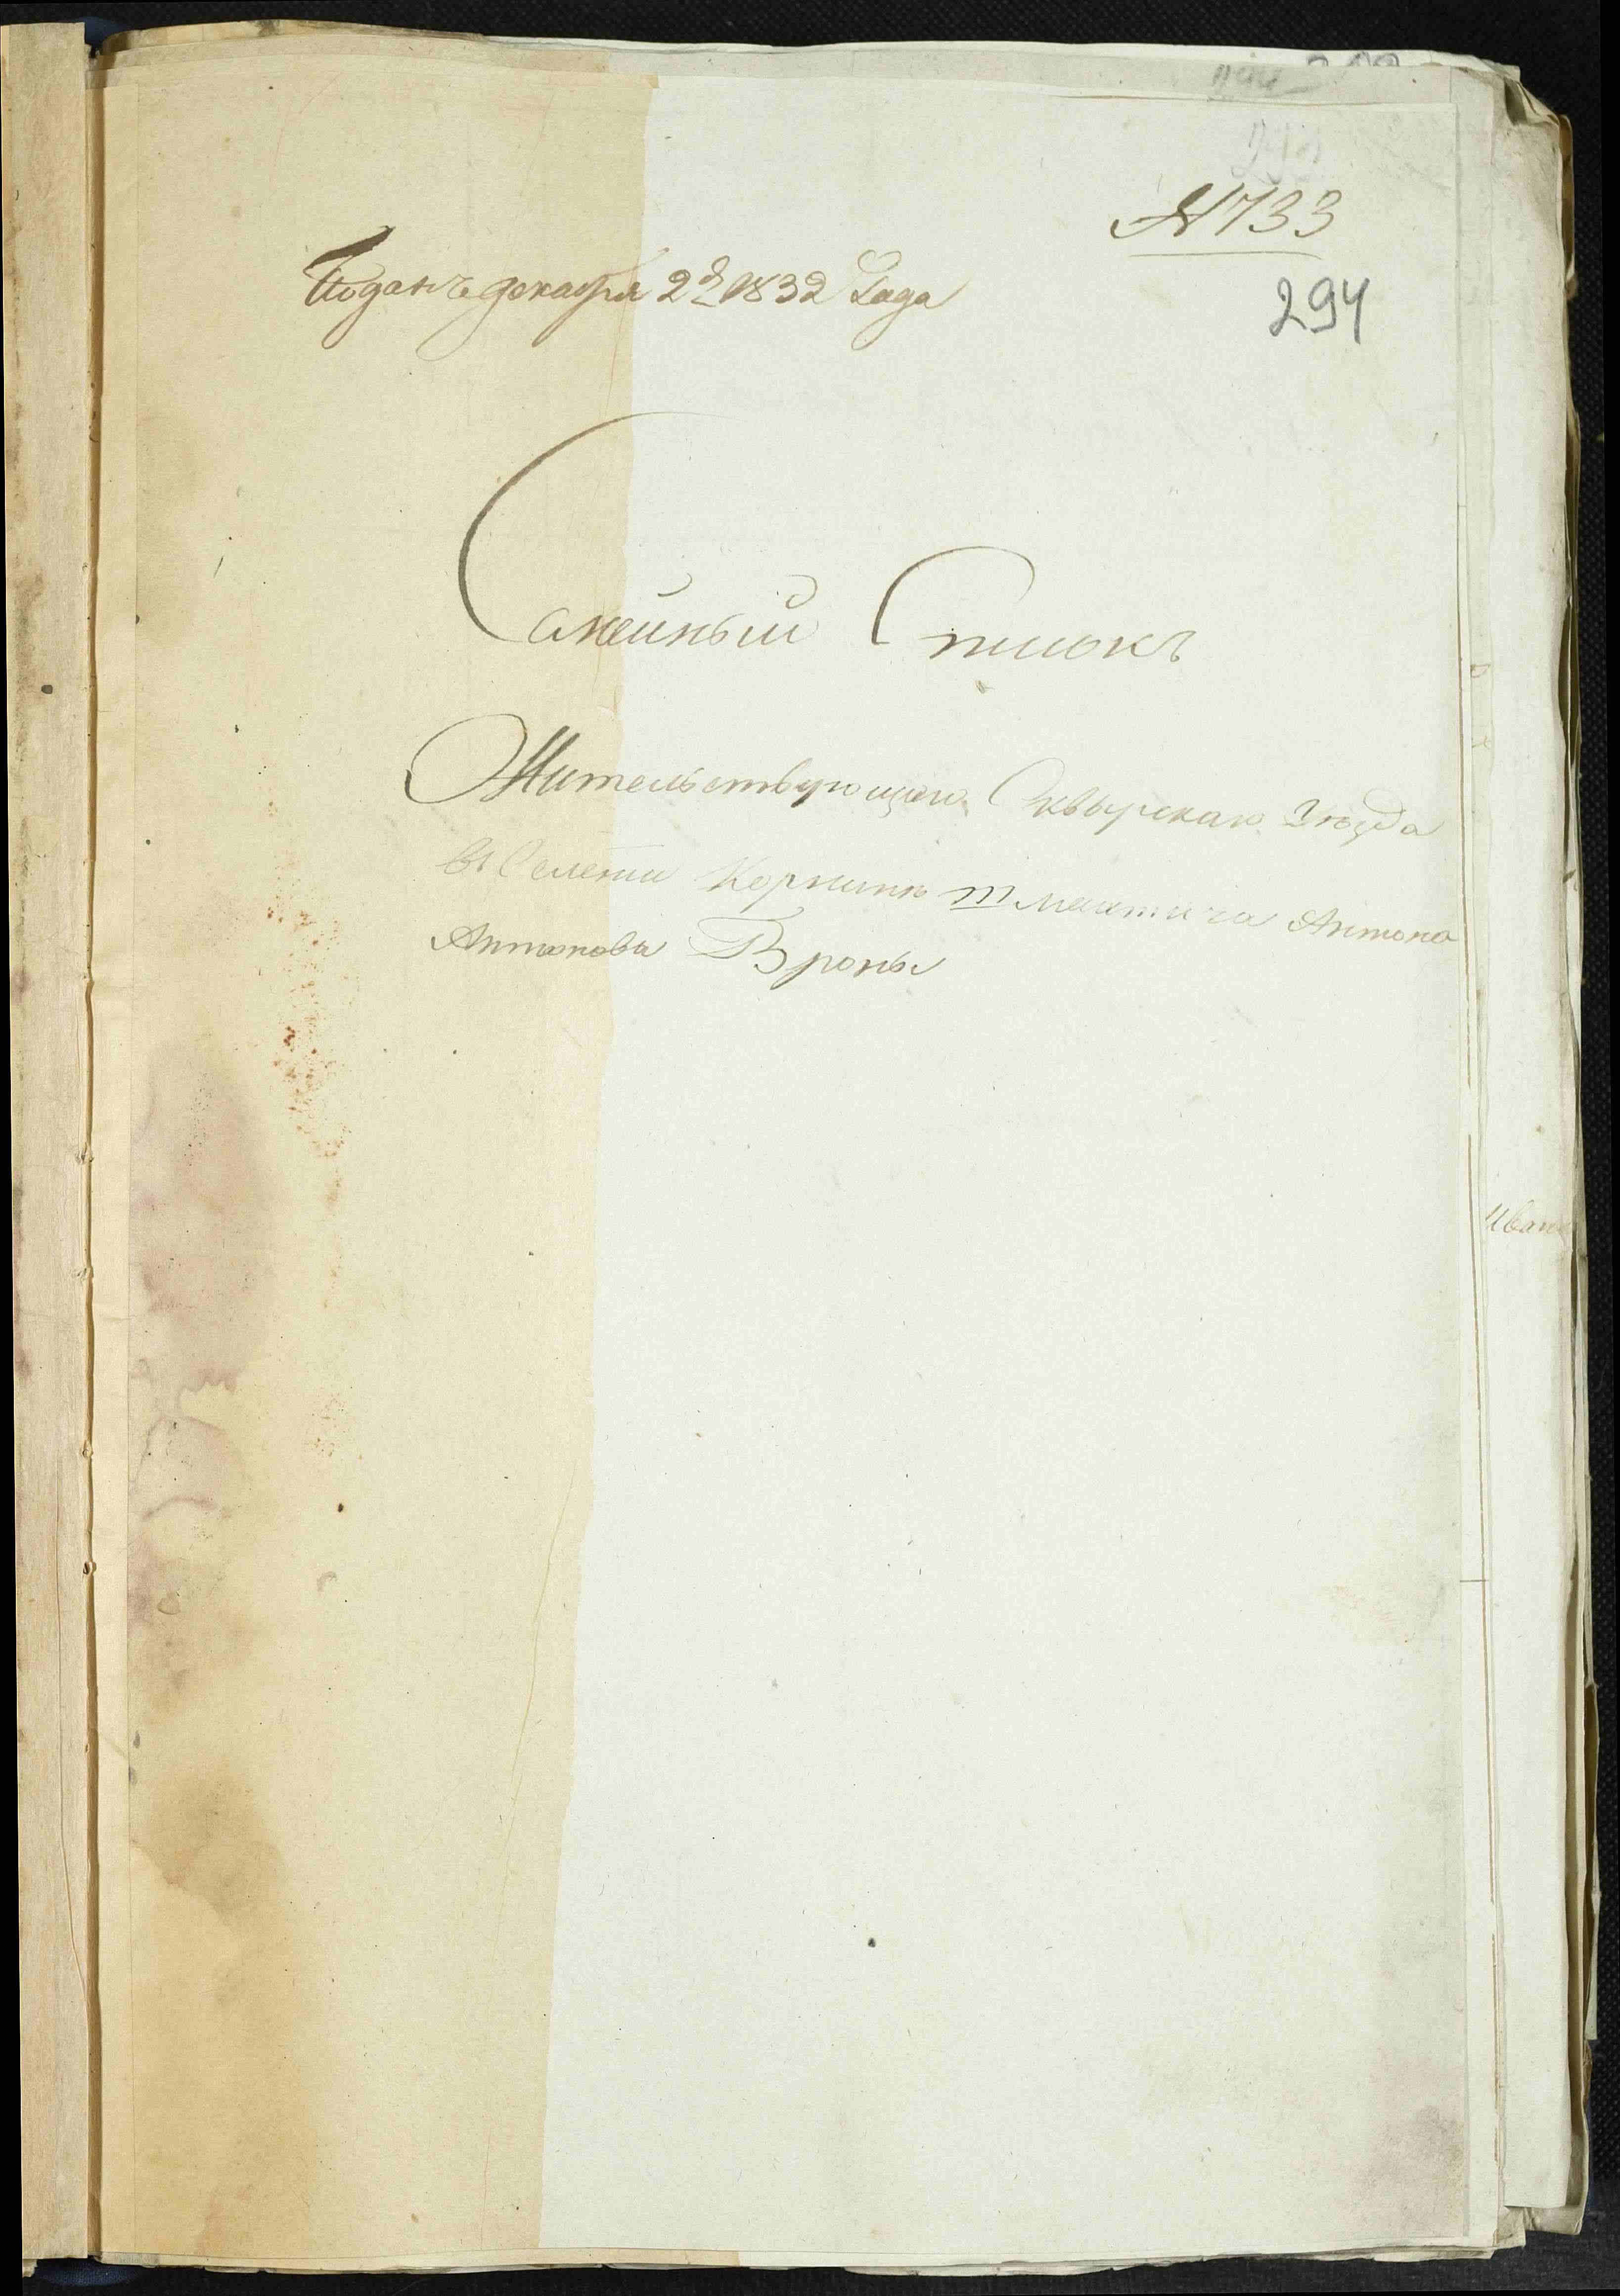 № 733
Поданъ декабря 2го 1832 Года
294
Семейный Списокъ
Жительствующаго Сквырскаго Уезда
въ Селении Корнинѣ шляхтича Антона
Антонова Вроны
Иван